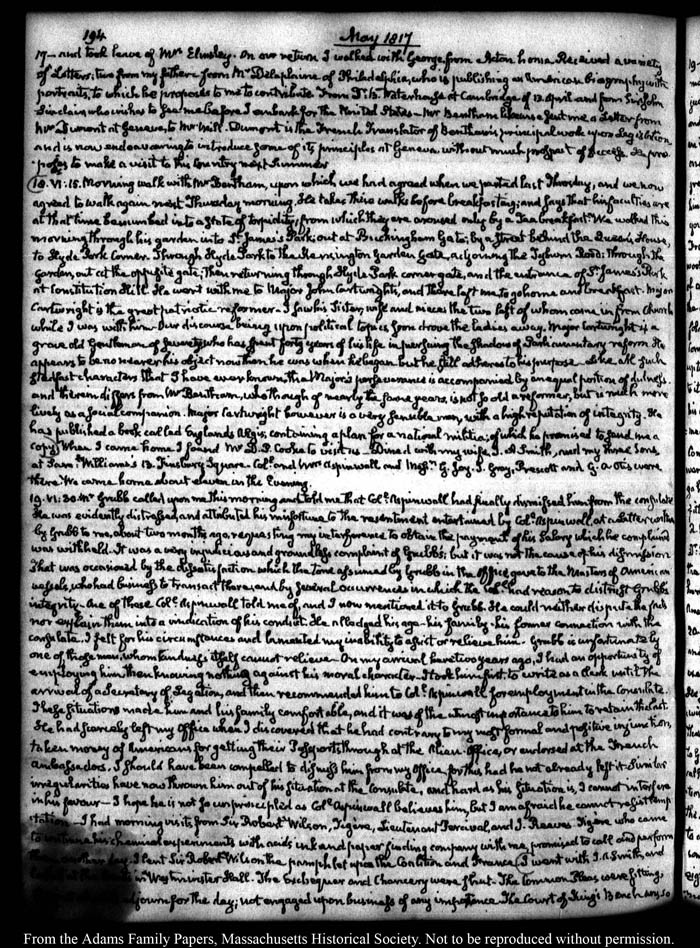 194 May 1817
17— and took leave of Mrs Elmsley. On our return I walked with George from Acton home. Received a variety
of Letters; two from my father; from Mr Delaplaine of Philadelphia, who is publishing an American biography with
portraits, to which he proposes to me to contribute. From Dr B. Waterhouse at Cambridge of 12 April and from Sir John
Sinclair who wishes to see me before I embark for the United States— Mr Bentham likewise sent me a Letter from
Mr Dumont at Geneva, to Mr Mill. Dumont is the French Translator of Bentham's principal work upon Legislation
and is now endeavouring to introduce some of its principles at Geneva, without much prospect of success. He pro
-poses to make a visit to this Country next Summer
18. VI:15. Morning walk with Mr Bentham, upon which we had agreed when we parted last Thursday, and we now
agreed to walk again next Thursday morning. He takes these walks before breakfasting; and says that his faculties are
at that time benumbed into a state of torpidity, from which they are aroused only by a Tea breakfast. We walked this
morning through his garden into St James's Park; out at Buckingham Gate; by a Street behind the Queen's House,
to Hyde Park Corner. Through Hyde Park to the Kensington Garden Gate, adjoining the Tyburn Road: through the
Garden, out at the opposite gate; then returning through Hyde Park corner gate, and the entrance of St. James's Park
at Constitution Hill. He went with me to Major John Cartwright's, and there left me to go home and breakfast. Major
Cartwright is the great patriotic reformer. I saw his Sister, wife and nieces the two last of whom came in from Church
while I was with him. Our discourse being upon political topics soon drove the ladies away. Major Cartwright is a
grave old Gentleman of Seventy who has spent forty years of his life in pursuing the shadow of Parliamentary reform. He
appears to be no nearer his object now than he was when he began but he still adheres to his purpose. Like all such
stedfast characters that I have ever known, the Major's perseverance is accompanied by an equal portion of dulness.
and therein differs from Mr Bentham, who though of nearly the same years, is not so old a reformer, but is much more
lively as a social companion. Major Cartwright however is a very sensible man, with a high reputation of integrity. He
has published a book called England's Ægis, containing a plan for a national militia; of which he promised to send me a
copy. When I came home I found Mr B. P. Cooke to visit us. Dined with my wife, J. A. Smith, and my three sons,
at Sam. Williams's 13. Finsbury Square. Col. and Mrs Aspinwall and Messrs G. Joy, S. Gray, Prescott and G. A. Otis were
there. We came home about eleven in the Evening.
19. VI:30. Mr Grubb called upon me this morning and told me that Col. Aspinwall had finally dismissed him from the consulate
He was evidently distressed, and attributed his misfortune to the resentment entertained by Col. Aspinwall, at a Letter written
by Grubb to me, about two months ago, requesting my interference to obtain the payment of his Salary which he complained
was withheld. It was a very injudicious and groundless complaint of Grubb's; but it was not the cause of his dismission
That was occasioned by the dissatisfaction which the tone assumed by Grubb in the office gave to the Masters of American
vessels, who had business to transact there; and by several occurrences in which the Col. had reason to distrust Grubb's
integrity. One of those Col. Aspinwall told me of, and I now mentioned it to Grubb. He could neither dispute the facts
nor explain them into a vindication of his conduct. He alledged his age— his family— his former connection with the
consulate. I felt for his circumstances and lamented my inability to assist or relieve him. Grubb is unfortunate by
one of those men, whom kindness itself cannot relieve. On my arrival here two years ago, I had an opportunity of
employing him then knowing nothing against his moral character. I took him first to write as a clerk until the
arrival of a Secretary of Legation, and then recommended him to Col. Aspinwall for employment in the Consulate.
These situations made him and his family comfortable, and it was of the utmost importance to him to retain the last.
He had scarcely left my Office when I discovered that he had contrary to my most formal and positive injunction,
taken money of Americans for getting their Passports through at the Alien-office, or endorsed at the French
ambassadors. I should have been compelled to dismiss him from my office, for this had he not already left it. Similar
irregularities have now thrown him out of his situation at the Consulate, and hard as his situation is, I cannot interfere
in his favour— I hope he is not so unprincipled as Col. Aspinwall believes him, but I am afraid he cannot resist temp
tation— I had morning visits from Sir Robert Wilson, Tigère, Lieutenant Perceval, and J. Reeves. Tigère who came
to his chemical experiments with acids ink and paper finding company with me, promised to call and perform
another day. I lent Sir Robert Wilson the pamphlet upon the Coalition and France. I went with J. A. Smith, and
in Westminster Hall. The Exchequer and Chancery were shut. The Common Pleas were sitting,
adjourn for the day; not engaged upon business of any importance. The Court of King's Bench was so
From the Adams Family Papers, Massachusetts Historical Society. Not to be reproduced without permission.